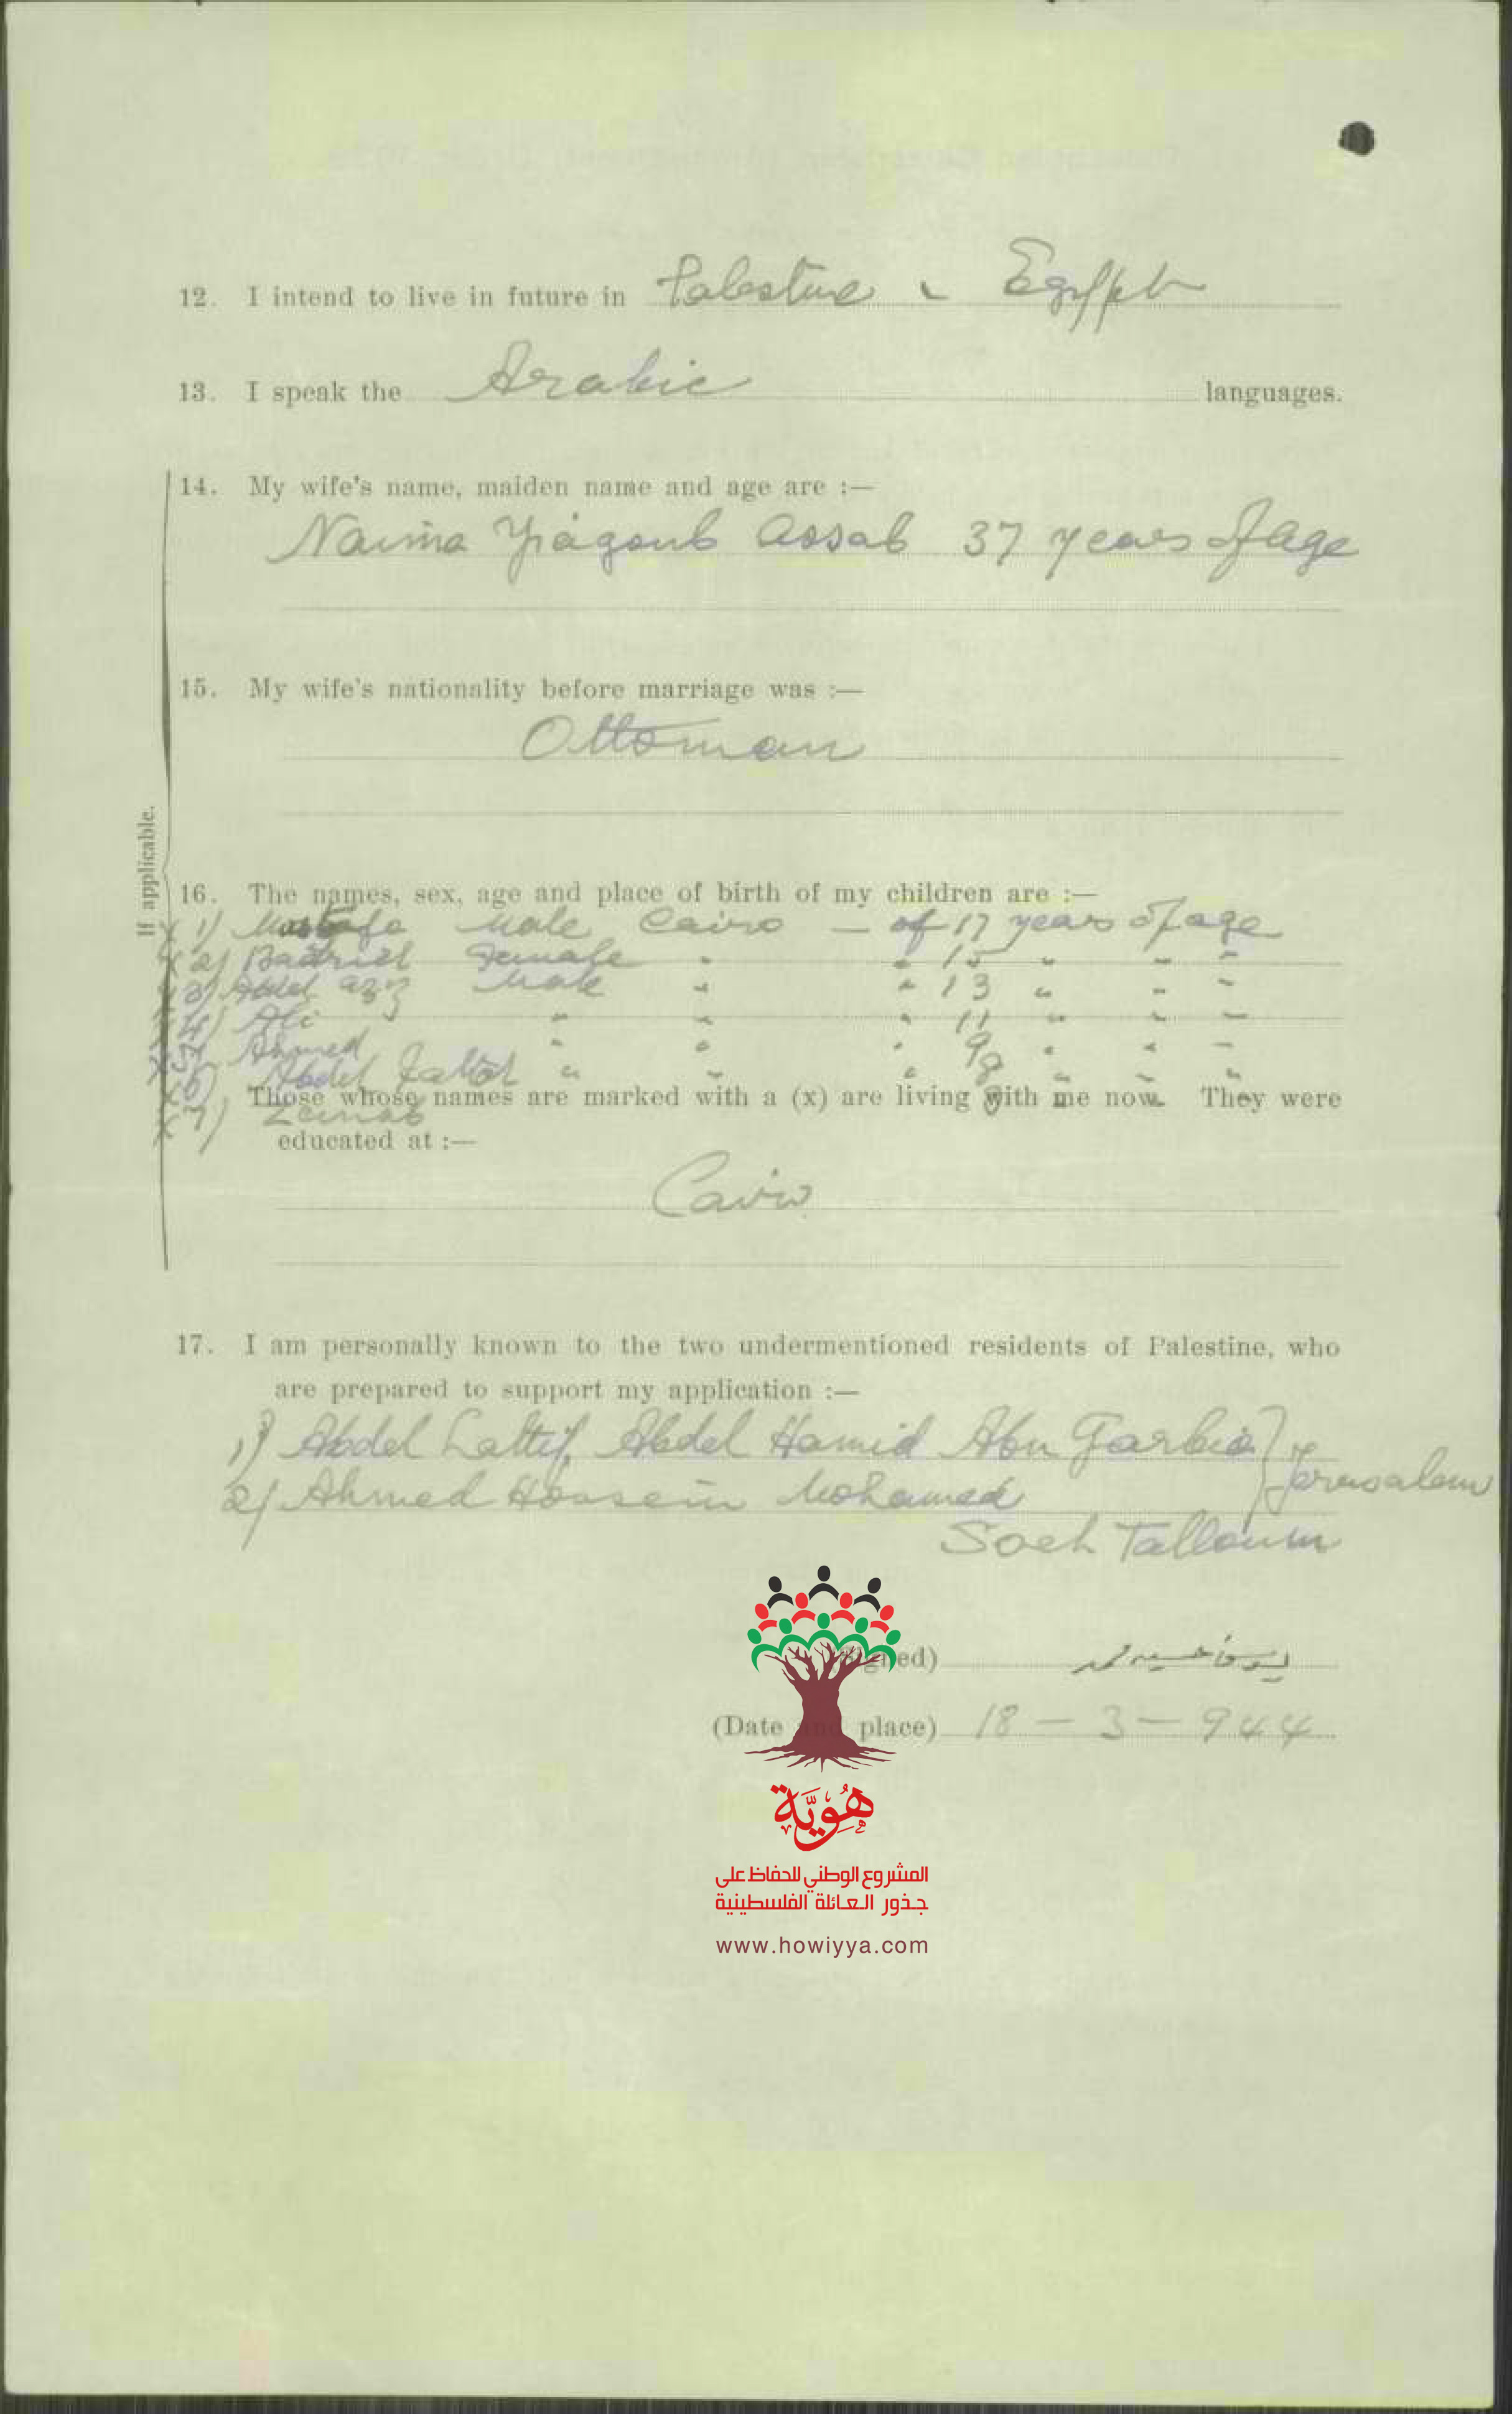 12. I intend to live in future in Palestine Egypt
13. I speak the Arabic languages.
If applicable.
14. My wife's name, maiden name and age are :—
Naima Yiagoub Assab 37 years of age
15. My wife's nationality before marriage was :—
Ottoman
16. The names, sex, age and place of birth of my children are :—
x 1) Mostafa Male Cairo — of 17 years of age
x 2) Badriet Female " " 15 " " "
x 3) Abdel aziz Male " " 13 " " "
x 4) Ali " " " 11 " " "
x 5) Ahmed " " " 9 " " "
x 6) Abdel " " " 8 " " "
Those whose names are marked with a (x) are living with me now. They were
x 7) Zeinab
educated at :—
Cairo
17. I am personally known to the two undermentioned residents of Palestine, who
are prepared to support my application :—
1) Abdel Lattif Abdel Hamid Abu Garbia } Jerusalem
2) Ahmed Hossein Mohamed
Talloum
(Signed) يوسف حسين محمد
(Date and place) 18 — 3 — 944
هُويَّة
المشروع الوطني للحفاظ على
جذور العائلة الفلسطينية
www.howiyya.com